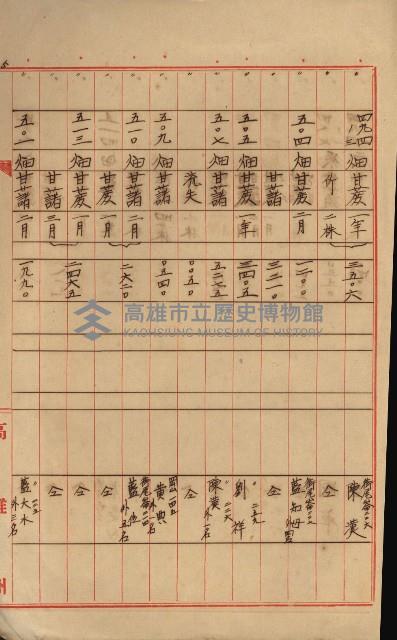 四九四ノ三 畑 甘蔗 一年 三五〇六 街尾崙二〇六 陳漢
〃 竹 二株 仝
五〇四 畑 甘蔗 二月 一二〇〇 街尾崙二〇二 藍知母
〃 甘藷 三二一〇 仝
五〇五 畑 甘蔗 一年 三四〇五 〃 二五九 劉祥
五〇七 畑 甘藷 五二七五 〃 二二六 陳漢 外一名
〃 流失 〇〇五〇 仝
五〇九 畑 甘藷 〇五四〇 一四五 黄典 外一名
五一〇 畑 甘藷 二月 二六二〇 街尾崙二〇四 藍伍 外五名
〃 甘蔗 一月 仝
五一三 畑 甘蔗 一月 二四六五 仝
〃 甘藷 三月 仝
五〇一 畑 甘藷 二月 一九九〇 藍大水 外三名
高雄州
高雄市立歷史博物館
KAOHSIUNG MUSEUM OF HISTORY